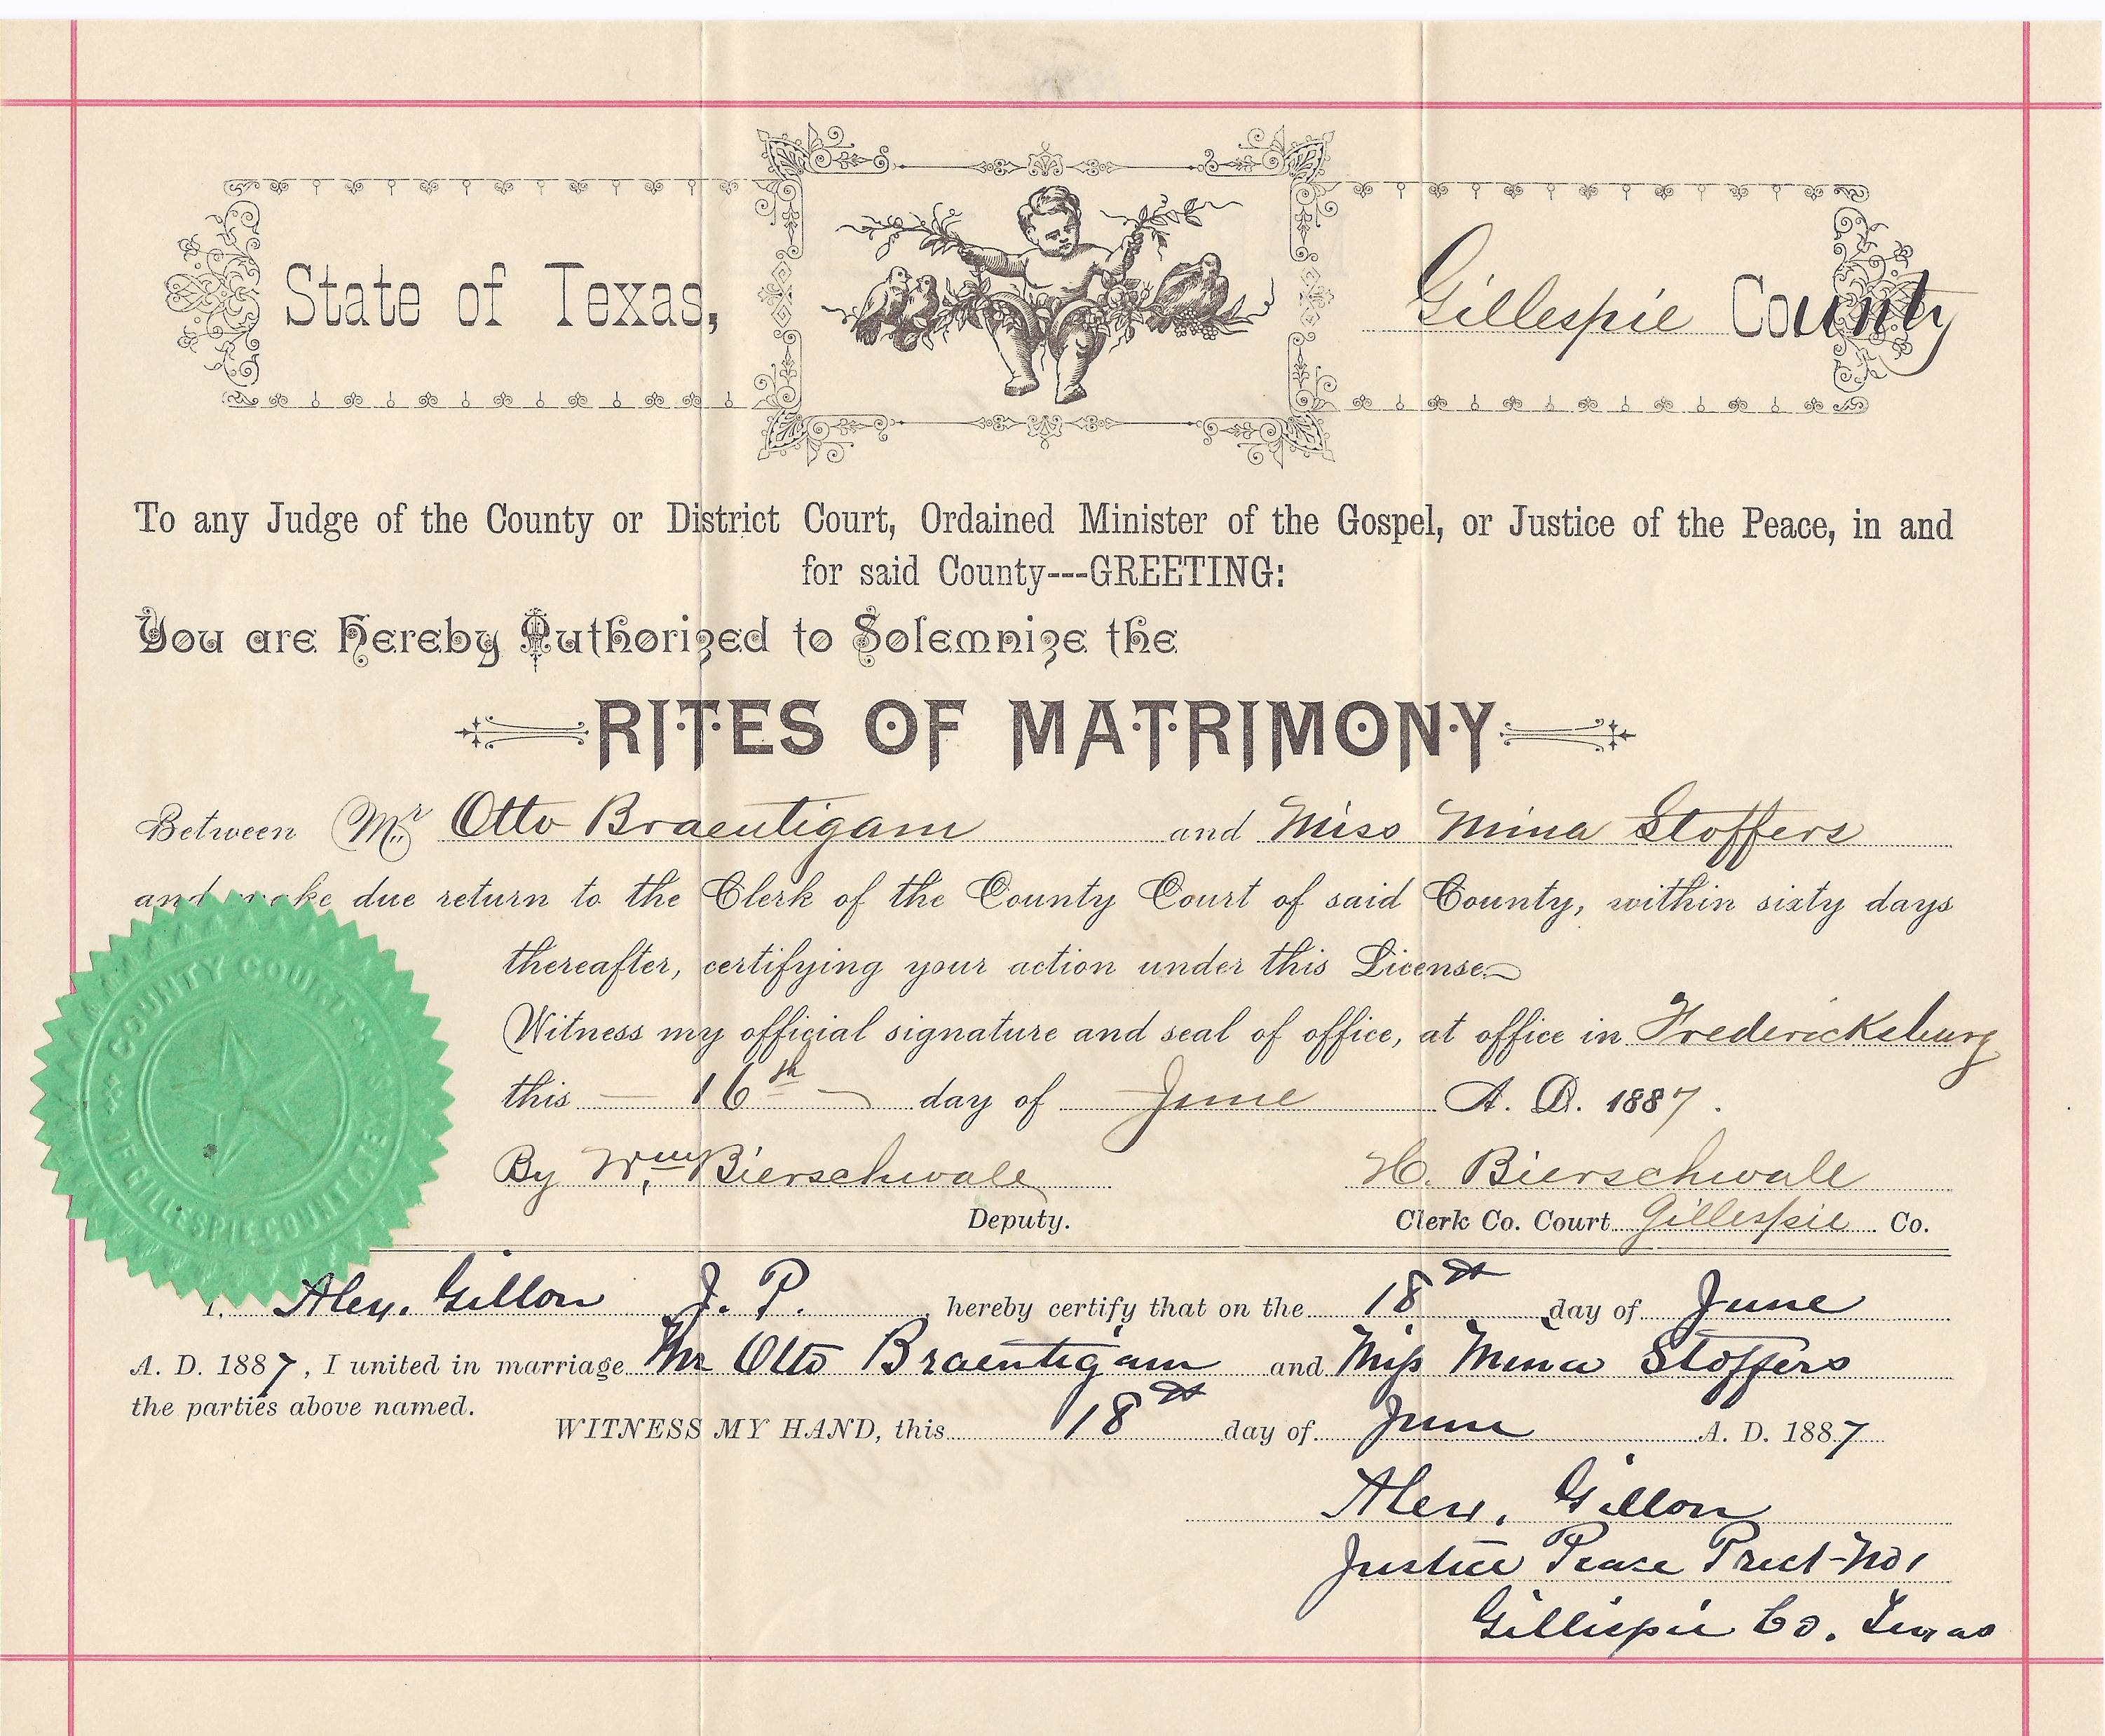 State of Texas, Gillespie County
To any Judge of the County or District Court, Ordained Minister of the Gospel, or Justice of the Peace, in and
for said County---GREETING:
You are Hereby Authorized to Solemnize the
RITES OF MATRIMONY
Between Mr Otto Braeutigam and Miss Mina Stoffers
and make due return to the Clerk of the County Court of said County, within sixty days
thereafter, certifying your action under this License.
Witness my official signature and seal of office, at office in Fredericksburg
this 16th day of June A. D. 1887.
By Wm Bierschwale H. Bierschwale
Deputy. Clerk Co. Court Gillespie Co.
COUNTY COURT
OF GILLESPIE COUNTY TEXAS
I, Alex. Gillon J. P., hereby certify that on the 18th day of June
A. D. 1887, I united in marriage Mr Otto Braeutigam and Miss Mina Stoffers
the parties above named.
WITNESS MY HAND, this 18th day of June A. D. 1887
Alex. Gillon
Justice Peace Prect-No 1
Gillespie Co. Texas